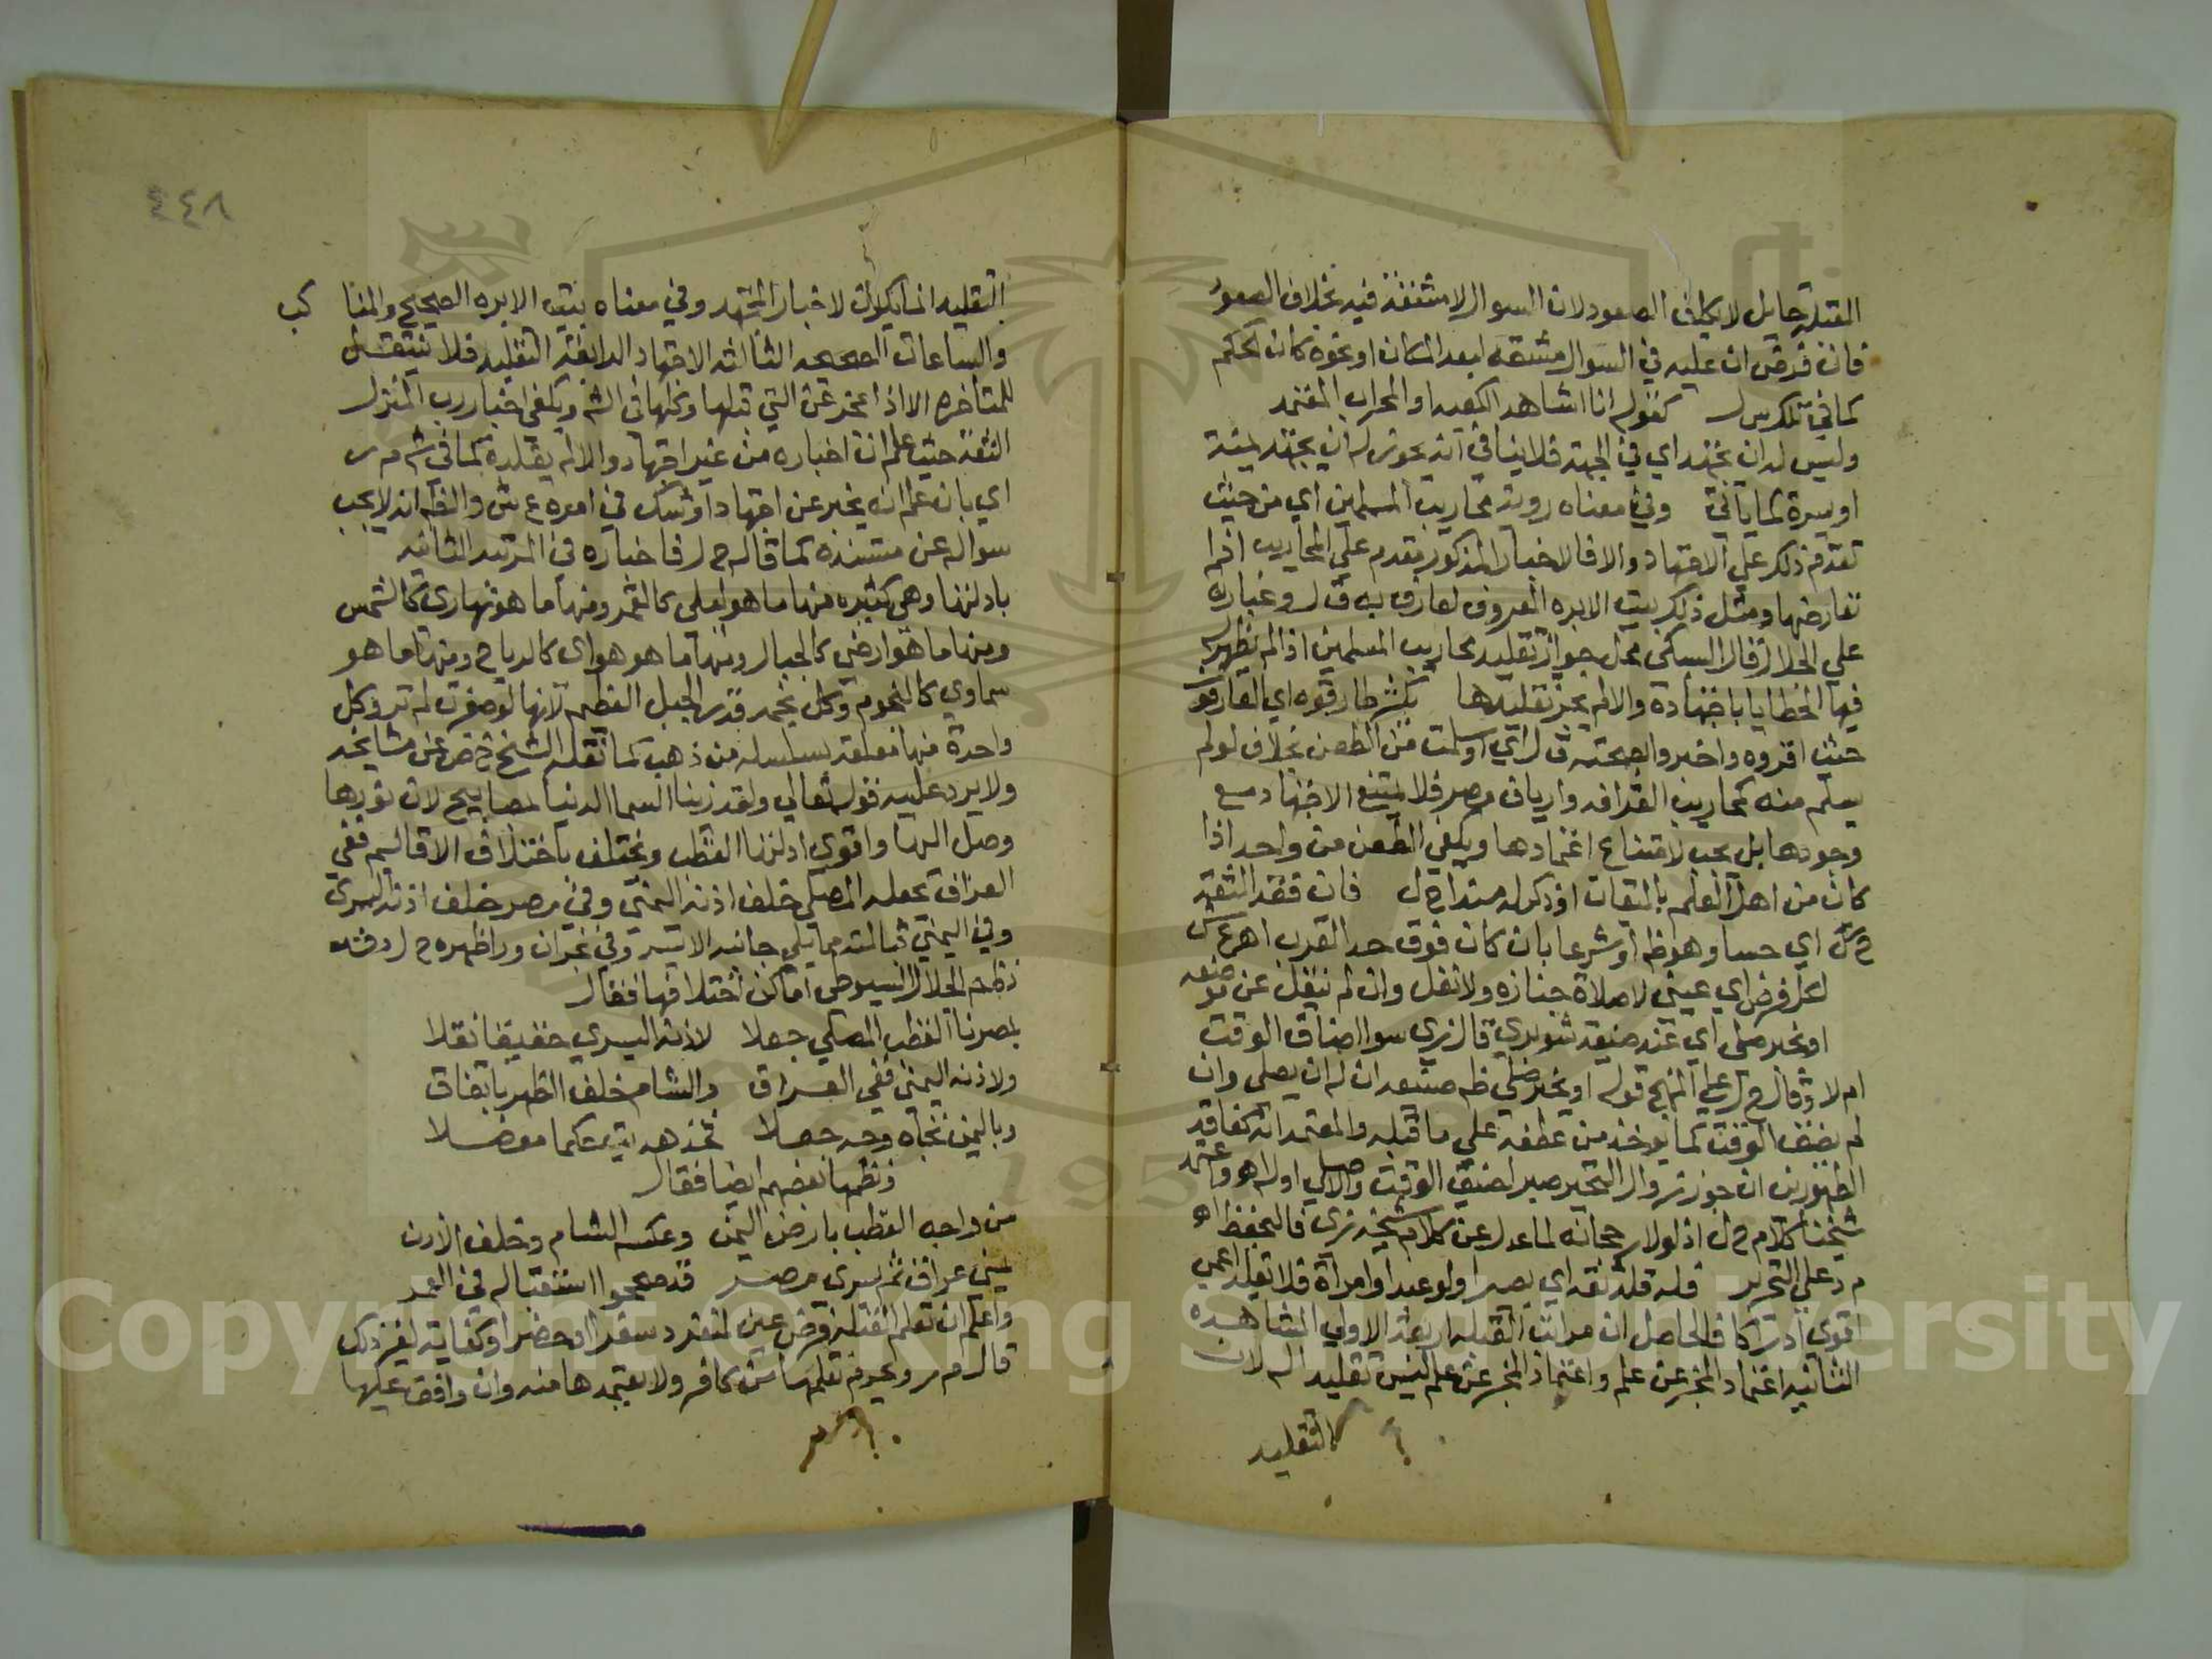 القبلة حايل لا يكلف الصعود لان السوال لا مشقة فيه بخلاف الصعود
فان فرض ان عليه في السوال مشقة لبعد المكان او نحوه كان الحكم
كما في تلك كقوله انا اشاهد الكعبه او المحراب المعتمد
وليس له ان يجتهد اي في الجهة فلا ينافي انه يجوز له ان يجتهد يمنة
او يسرة كما ياتي وفي معناه روية محاريب المسلمين اي من حيث
تقدم ذلك على الاجتهاد والا فالاخبار المذكور مقدم على المحاريب اذا
تعارضها ومثل ذلك بيت الابره المعروف لعارف به ق ل وعبارة
على الجلال قال السبكي محل جواز تقليد محاريب المسلمين اذا لم يظهر له
فيها الخطا باجتهاده والا لم يجز تقليدها بكثرة طارقوه اي العارفون
حيث اقروه واخبروا بصحته ق ل اي اوسلمت من الطعن بخلاف لو لم
يسلم منه كمحاريب القرافه وارياف مصر فلا يمتنع الاجتهاد مع
وجودها بل يجب لامتناع اعتمادها ويكفي الطعن من واحد اذا
كان من اهل العلم بالميقات او ذكر له مستندا ح ل فان فقد الثقة
اي حسا وهو ظ او شرعا بان كان فوق حد القرب اه ع ش
لكل فرض اي عيني لا صلاة جنازه ولا نفل وان لم ينتقل عن موضعه
او تحير صلى اي عند ضيقه شوبري قال زي سوا ضاق الوقت
ام لا وقال ح ل على المنهج قوله او تحير صلى ظ صنيعه ان له ان يصلي وان
لم يضق الوقت كما يوخذ من عطفه على ما قبله والمعتمد انه كفاقد
الطهورين ان جوز زوال التحير صبر لضيق الوقت والا صلى اوله اه واعتمد
شيخنا كلام ح ل اذ لولا رجحانه لما عدل عن كلام شيخه زي فاليحفظ اه
م د على التحرير قلد ثقه اي بصيرا ولو عبدا او امراة فلا يقلد اعمى
اقوى ادراكا فالحاصل ان مراتب القبله اربعة الاولي المشاهده
الثانيه اعتماد المخبر عن علم واعتماد المخبر عن علم ليس تقليدا له لان
التقليد
٤٤٨
التقليد انما يكون لاخبار المجتهد وفي معناه بيت الابره الصحيح والمنا كب
والساعات الصحيحه الثالثه الاجتهاد الرابعة التقليد فلا ينتقل
للمتاخره الا اذا عجز عن التي قبلها وكلها في الشم ويكفي اخبار رب المنزل
الثقة حيث علم ان اخباره من غير اجتهاد والا لم يقلده كما في ش م ر
اي بان علم انه يخبر عن اجتهاد او شك في امره ع ش والظ انه لا يجب
سواله عن مستنده كما قاله ح ل فاخباره في المرتبه الثانيه
بادلتها وهي كثيره منها ما هو ليلي كالقمر ومنها ما هو نهاري كالشمس
ومنها ما هو ارضي كالجبال ومنها ما هو هوائ كالرياح ومنها ما هو
سماوي كالنجوم وكل نجمه قدر الجبل العظيم لانها لو صغرت لم تر وكل
واحدة منها معلقة بسلسله من ذهب كما نقله الشيخ خضر عن مشايخه
ولا يرد عليه قوله تعالي ولقد زينا السما الدنيا بمصابيح لان نورها
وصل الينا واقوى ادلتها القطب ويختلف باختلاف الاقاليم ففي
العراق يجعله المصلي خلف اذنه اليمنى وفي مصر خلف اذنه اليسرى
وفي اليمن قبالته مما يلي جانبه الايسر وفي نجران ورا ظهره ح ل وقد
نظم الجلال السيوطي اماكن اختلافها فقال
بمصرنا القطب المصلي جعلا لاذنه اليسري حقيقا نقلا
ولاذنه اليمنى ففي العراق والشام خلف الظهر باتفاق
وباليمن تجاه وجه جعلا فخذ هديت حكما مفضلا
ونظمها بعضهم ايضا فقال
من واجه القطب بارض اليمن وعكسه الشام وخلف الاذن
يمنى عراق ثم يسرى مصر قد صححوا استقباله في العمر
واعلم ان تعلم القبلة فرض عين لمنفرد سفرا او حضرا وكفاية لغير ذلك
قال م ر ويحرم تعلمها من كافر ولا يعتمدها منه وان وافق عليها